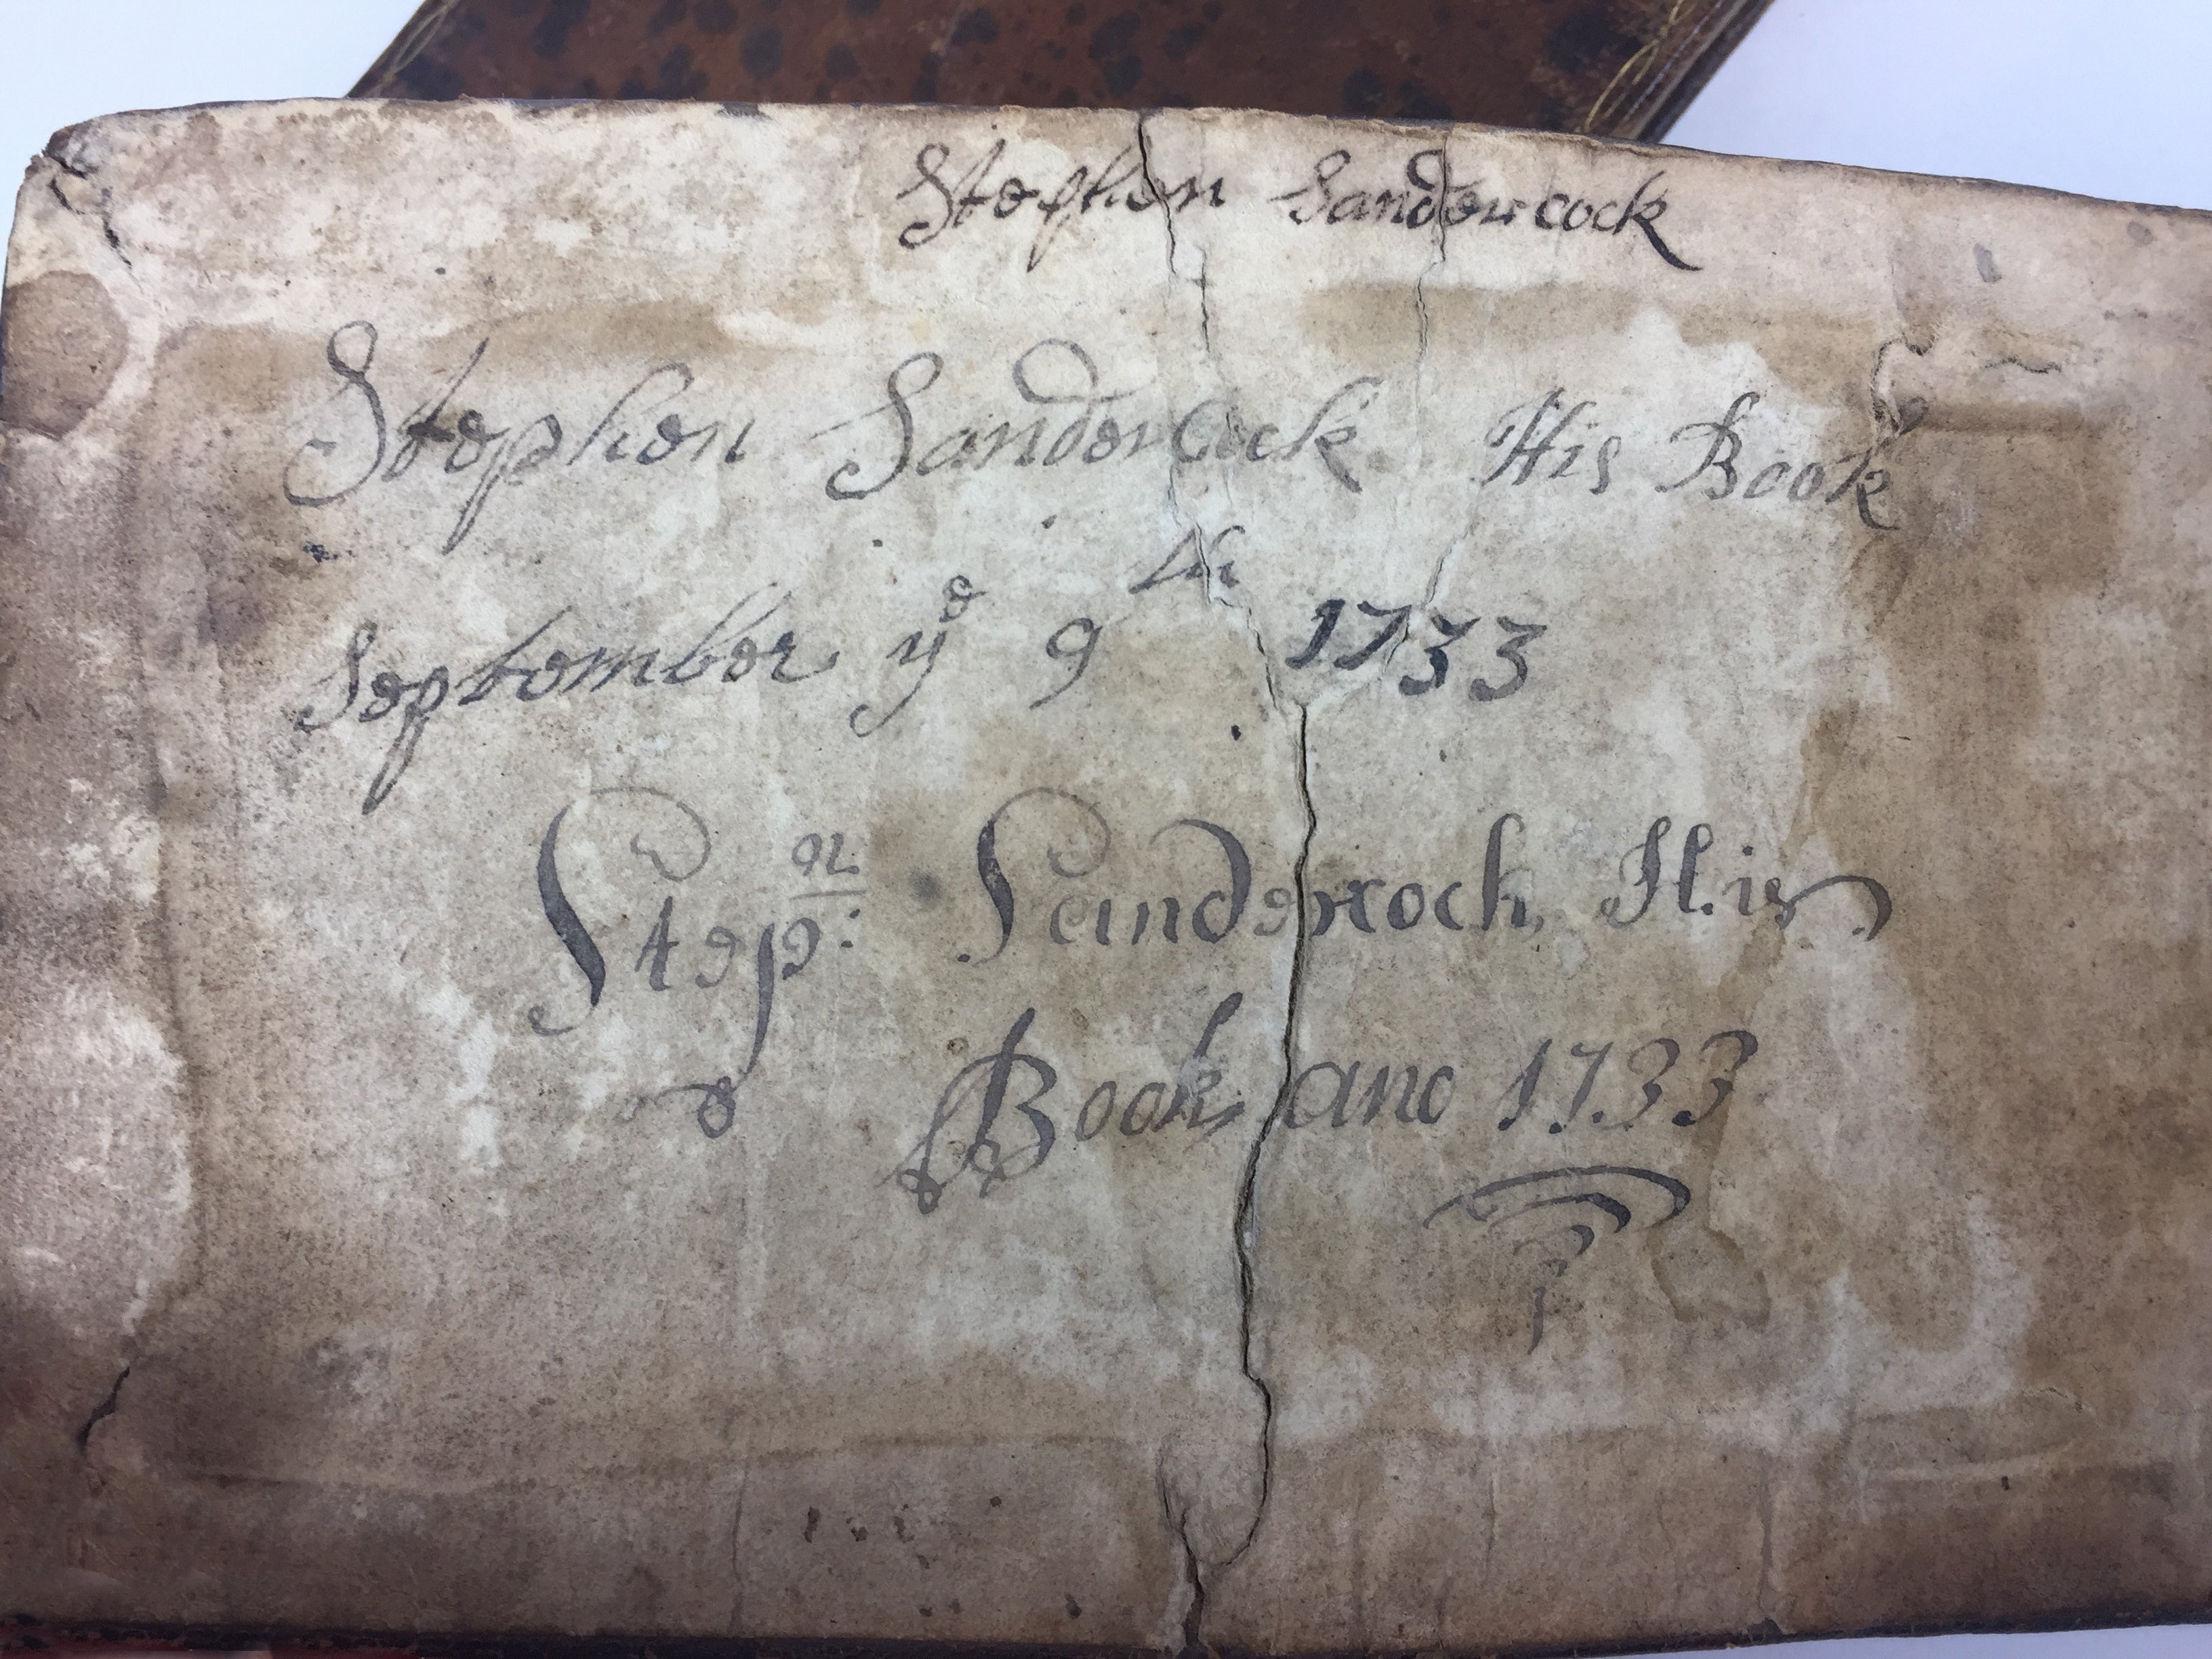 Stephen Sandercock
Stephen Sandercock His Book
September yᵉ 9ᵗʰ 1733
Stepⁿ: Sandercock His
Book ano 1733